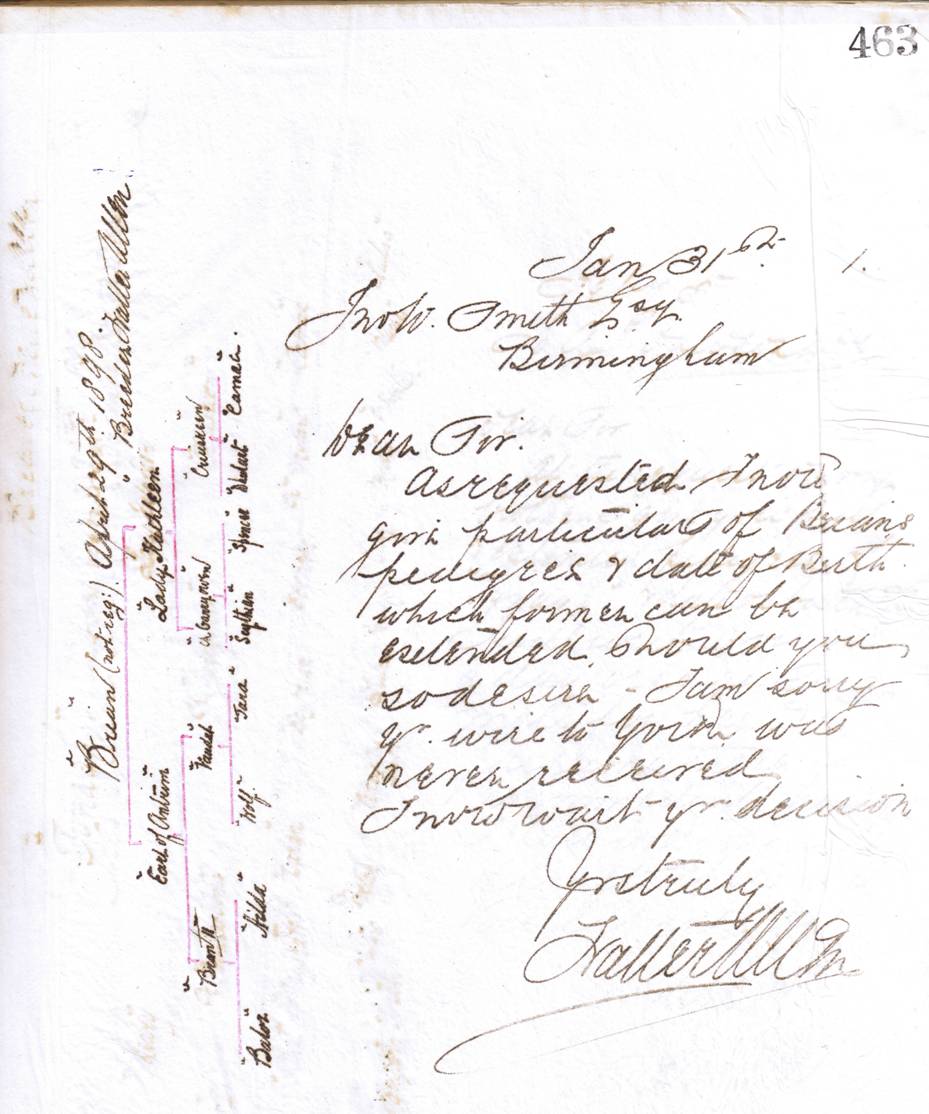 463
Jan 31st 1.
Jno W. Smith Esq.
Birmingham
Dear Sir.
As requested I now
give particulars of Brians
pedigree & date of Birth.
which former can be
extended, should you
so desire - I am sorry
yr. wire to York was
never received
I now wait yr. decision
Yrs truly
Walter Allen
"Brian" (not reg:) April 29th 1898. Breeder Walter Allen
"Earl of Antrim" "Lady Kathleen"
"Brant" "Vandal" "Cruiskeen"
"Hilda" "Wolf" "Tara" "Scythian" "Carmen".